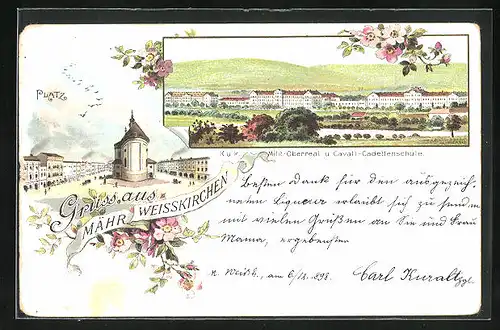 PLATZ.
K. u. K. Milit-Oberreal u. Cavall-Cadettenschule.
Gruss aus
MÄHR. WEISSKIRCHEN
Besten Dank für den ausgezeich-
neten Liqueur erlaubt sich zu senden
mit vielen Grüßen an Sie und Frau
Mama, ergebenster
M. Weißk., am 6/12. 898.
Carl Kuralt